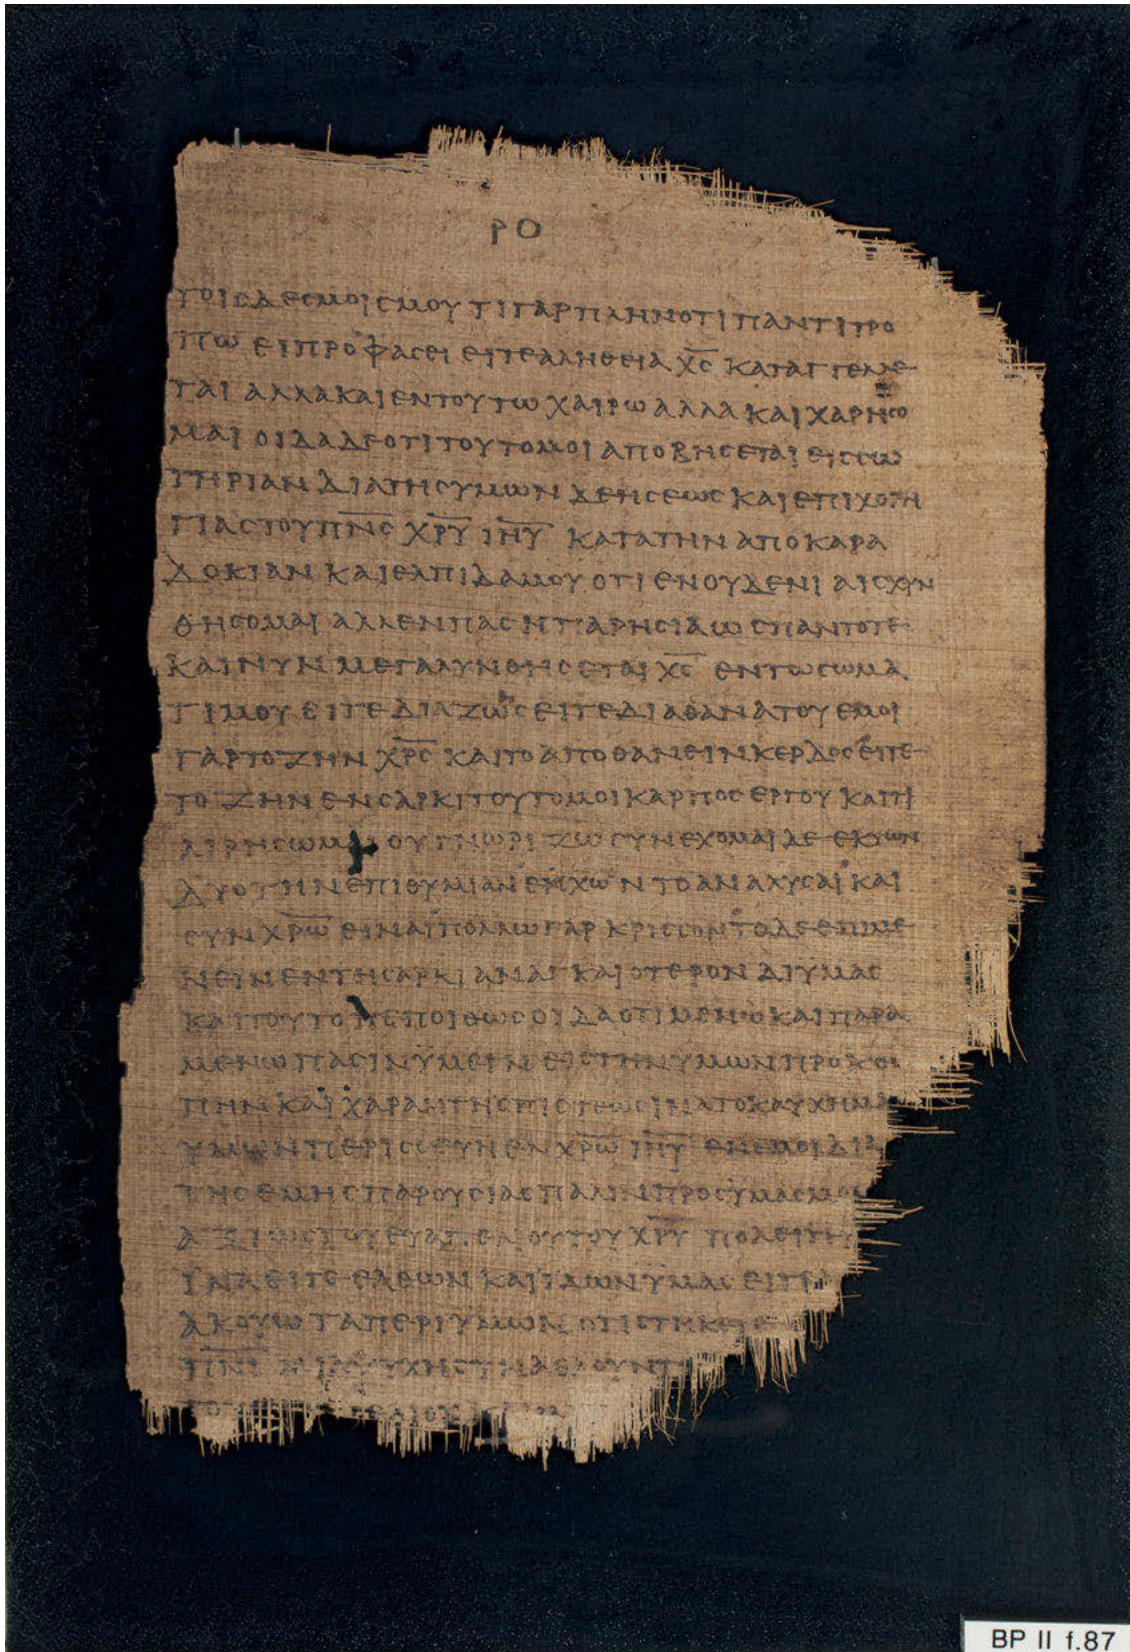 ΡΟ
ΤΟΙΣ ΔΕΣΜΟΙΣ ΜΟΥ ΤΙ ΓΑΡ ΠΛΗΝ ΟΤΙ ΠΑΝΤΙ ΤΡΟ
ΠΩ ΕΙΠΡΟΦΑΣΕΙ ΕΙΤΕ ΑΛΗΘΕΙΑ ΧΣ ΚΑΤΑΓΓΕΛΛΕ
ΤΑΙ ΑΛΛΑ ΚΑΙ ΕΝ ΤΟΥΤΩ ΧΑΙΡΩ ΑΛΛΑ ΚΑΙ ΧΑΡΗΣΟ
ΜΑΙ ΟΙΔΑ ΔΕ ΟΤΙ ΤΟΥΤΟ ΜΟΙ ΑΠΟΒΗΣΕΤΑΙ ΕΙΣ ΣΩ
ΤΗΡΙΑΝ ΔΙΑ ΤΗΣ ΥΜΩΝ ΔΕΗΣΕΩΣ ΚΑΙ ΕΠΙΧΟΡΗ
ΓΙΑΣ ΤΟΥ ΠΝΣ ΧΡΥ ΙΗΥ ΚΑΤΑ ΤΗΝ ΑΠΟΚΑΡΑ
ΔΟΚΙΑΝ ΚΑΙ ΕΛΠΙΔΑ ΜΟΥ ΟΤΙ ΕΝ ΟΥΔΕΝΙ ΑΙΣΧΥΝ
ΘΗΣΟΜΑΙ ΑΛΛ ΕΝ ΠΑΣΗ ΠΑΡΗΣΙΑ ΩΣ ΠΑΝΤΟΤΕ
ΚΑΙ ΝΥΝ ΜΕΓΑΛΥΝΘΗΣΕΤΑΙ ΧΣ ΕΝ ΤΩ ΣΩΜΑ
ΤΙ ΜΟΥ ΕΙΤΕ ΔΙΑ ΖΩΗΣ ΕΙΤΕ ΔΙΑ ΘΑΝΑΤΟΥ ΕΜΟΙ
ΓΑΡ ΤΟ ΖΗΝ ΧΡΣ ΚΑΙ ΤΟ ΑΠΟΘΑΝΕΙΝ ΚΕΡΔΟΣ ΕΙΤΕ
ΤΟ ΖΗΝ ΕΝ ΣΑΡΚΙ ΤΟΥΤΟ ΜΟΙ ΚΑΡΠΟΣ ΕΡΓΟΥ ΚΑΙ ΤΙ
ΑΙΡΗΣΩΜΑΙ ΟΥ ΓΝΩΡΙΖΩ ΣΥΝΕΧΟΜΑΙ ΔΕ ΕΚ ΤΩΝ
ΔΥΟ ΤΗΝ ΕΠΙΘΥΜΙΑΝ ΕΧΩΝ ΤΟ ΑΝΑΛΥΣΑΙ ΚΑΙ
ΣΥΝ ΧΡΩ ΕΙΝΑΙ ΠΟΛΛΩ ΓΑΡ ΚΡΙΣΣΟΝ ΤΟ ΔΕ ΕΠΙΜΕ
ΝΕΙΝ ΕΝ ΤΗ ΣΑΡΚΙ ΑΝΑΓΚΑΙΟΤΕΡΟΝ ΔΙ ΥΜΑΣ
ΚΑΙ ΤΟΥΤΟ ΠΕΠΟΙΘΩΣ ΟΙΔΑ ΟΤΙ ΜΕΝΩ ΚΑΙ ΠΑΡΑ
ΜΕΝΩ ΠΑΣΙΝ ΥΜΕΙΝ ΕΙΣ ΤΗΝ ΥΜΩΝ ΠΡΟΚΟ
ΠΗΝ ΚΑΙ ΧΑΡΑΝ ΤΗΣ ΠΙΣΤΕΩΣ ΙΝΑ ΤΟ ΚΑΥΧΗΜΑ
ΥΜΩΝ ΠΕΡΙΣΣΕΥΗ ΕΝ ΧΡΩ ΙΗΥ ΕΝ ΕΜΟΙ ΔΙΑ
ΤΗΣ ΕΜΗΣ ΠΑΡΟΥΣΙΑΣ ΠΑΛΙΝ ΠΡΟΣ ΥΜΑΣ ΜΟ
ΑΞΙΩΣ ΤΟΥ ΕΥΑΓΓΕΛΙΟΥ ΤΟΥ ΧΡΥ ΠΟΛΕΙΤΕ
ΙΝΑ ΕΙΤΕ ΕΛΘΩΝ ΚΑΙ ΙΔΩΝ ΥΜΑΣ ΕΙΤΕ Α
ΑΚΟΥΩ ΤΑ ΠΕΡΙ ΥΜΩΝ ΟΤΙ ΣΤΗΚΕΤΕ
ΠΝΙ ΜΙΑ ΨΥΧΗ ΣΥΝΑΘΛΟΥΝΤ
BP II f.87